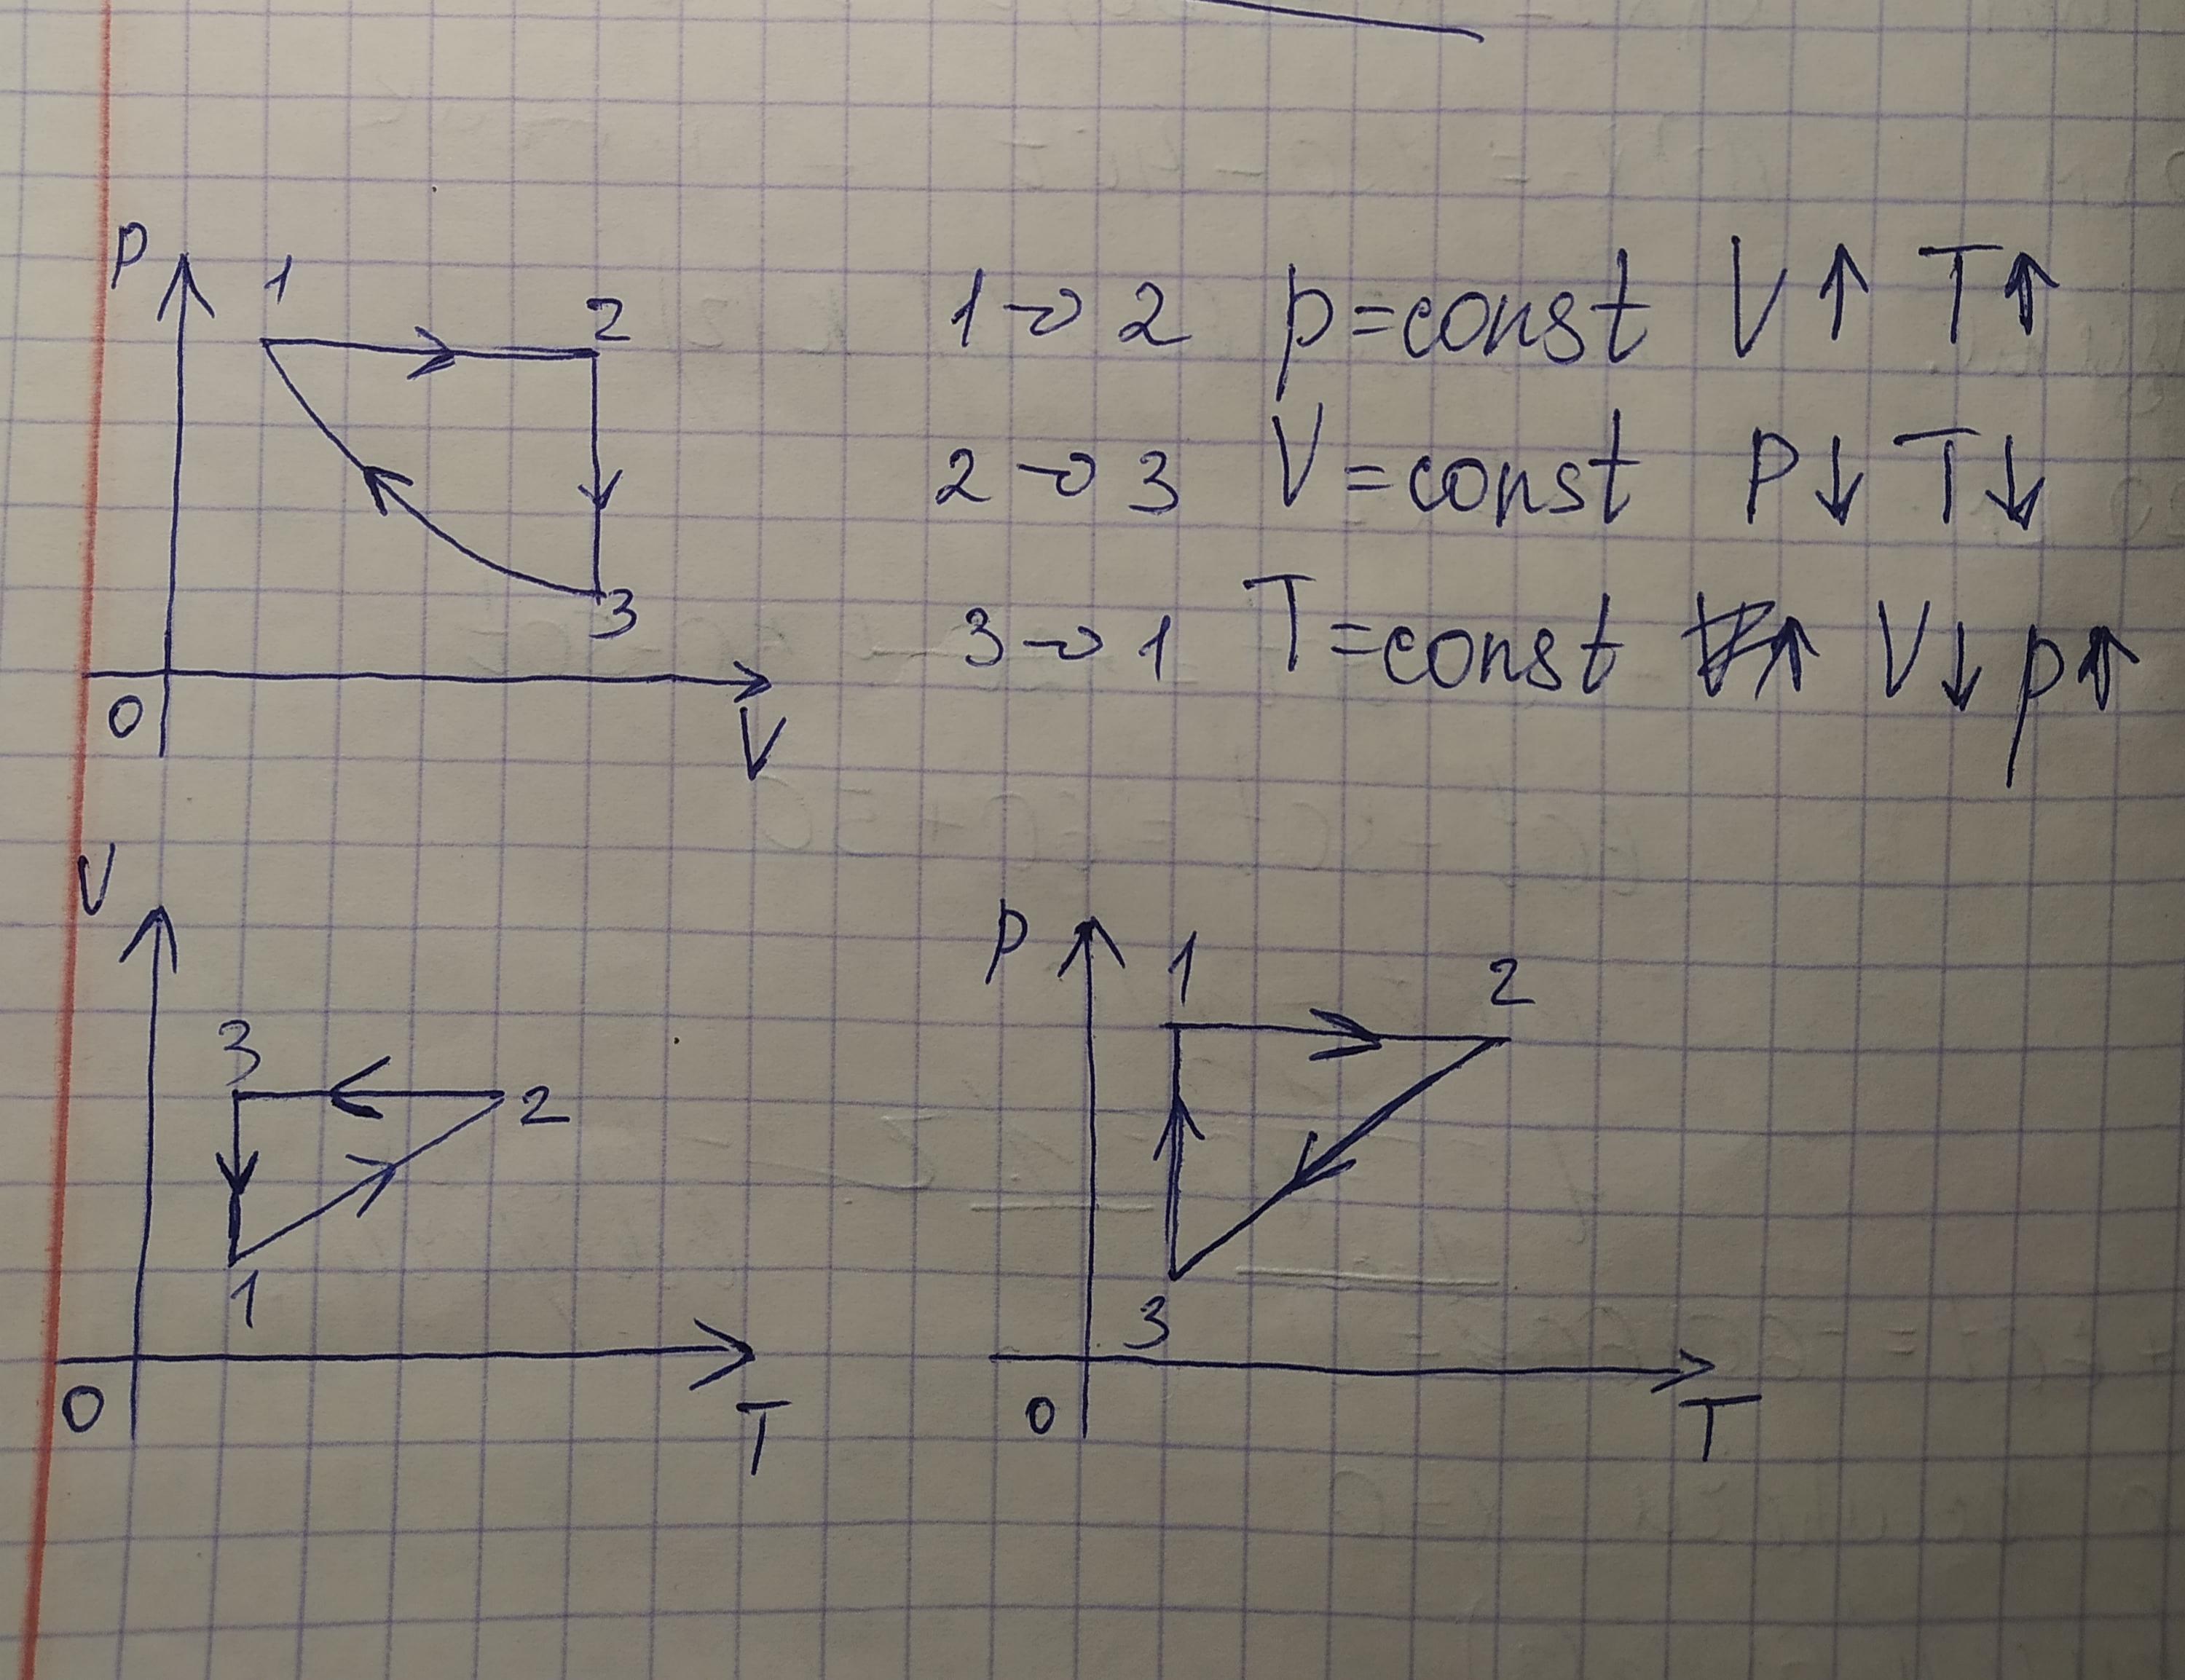 P
1
2
1 → 2 p=const V↑ T↑
2 → 3 V=const P↓ T↓
3
3 → 1 T=const V↓ p↑
0
V
V
P
1
2
3
2
1
3
0
T
0
T